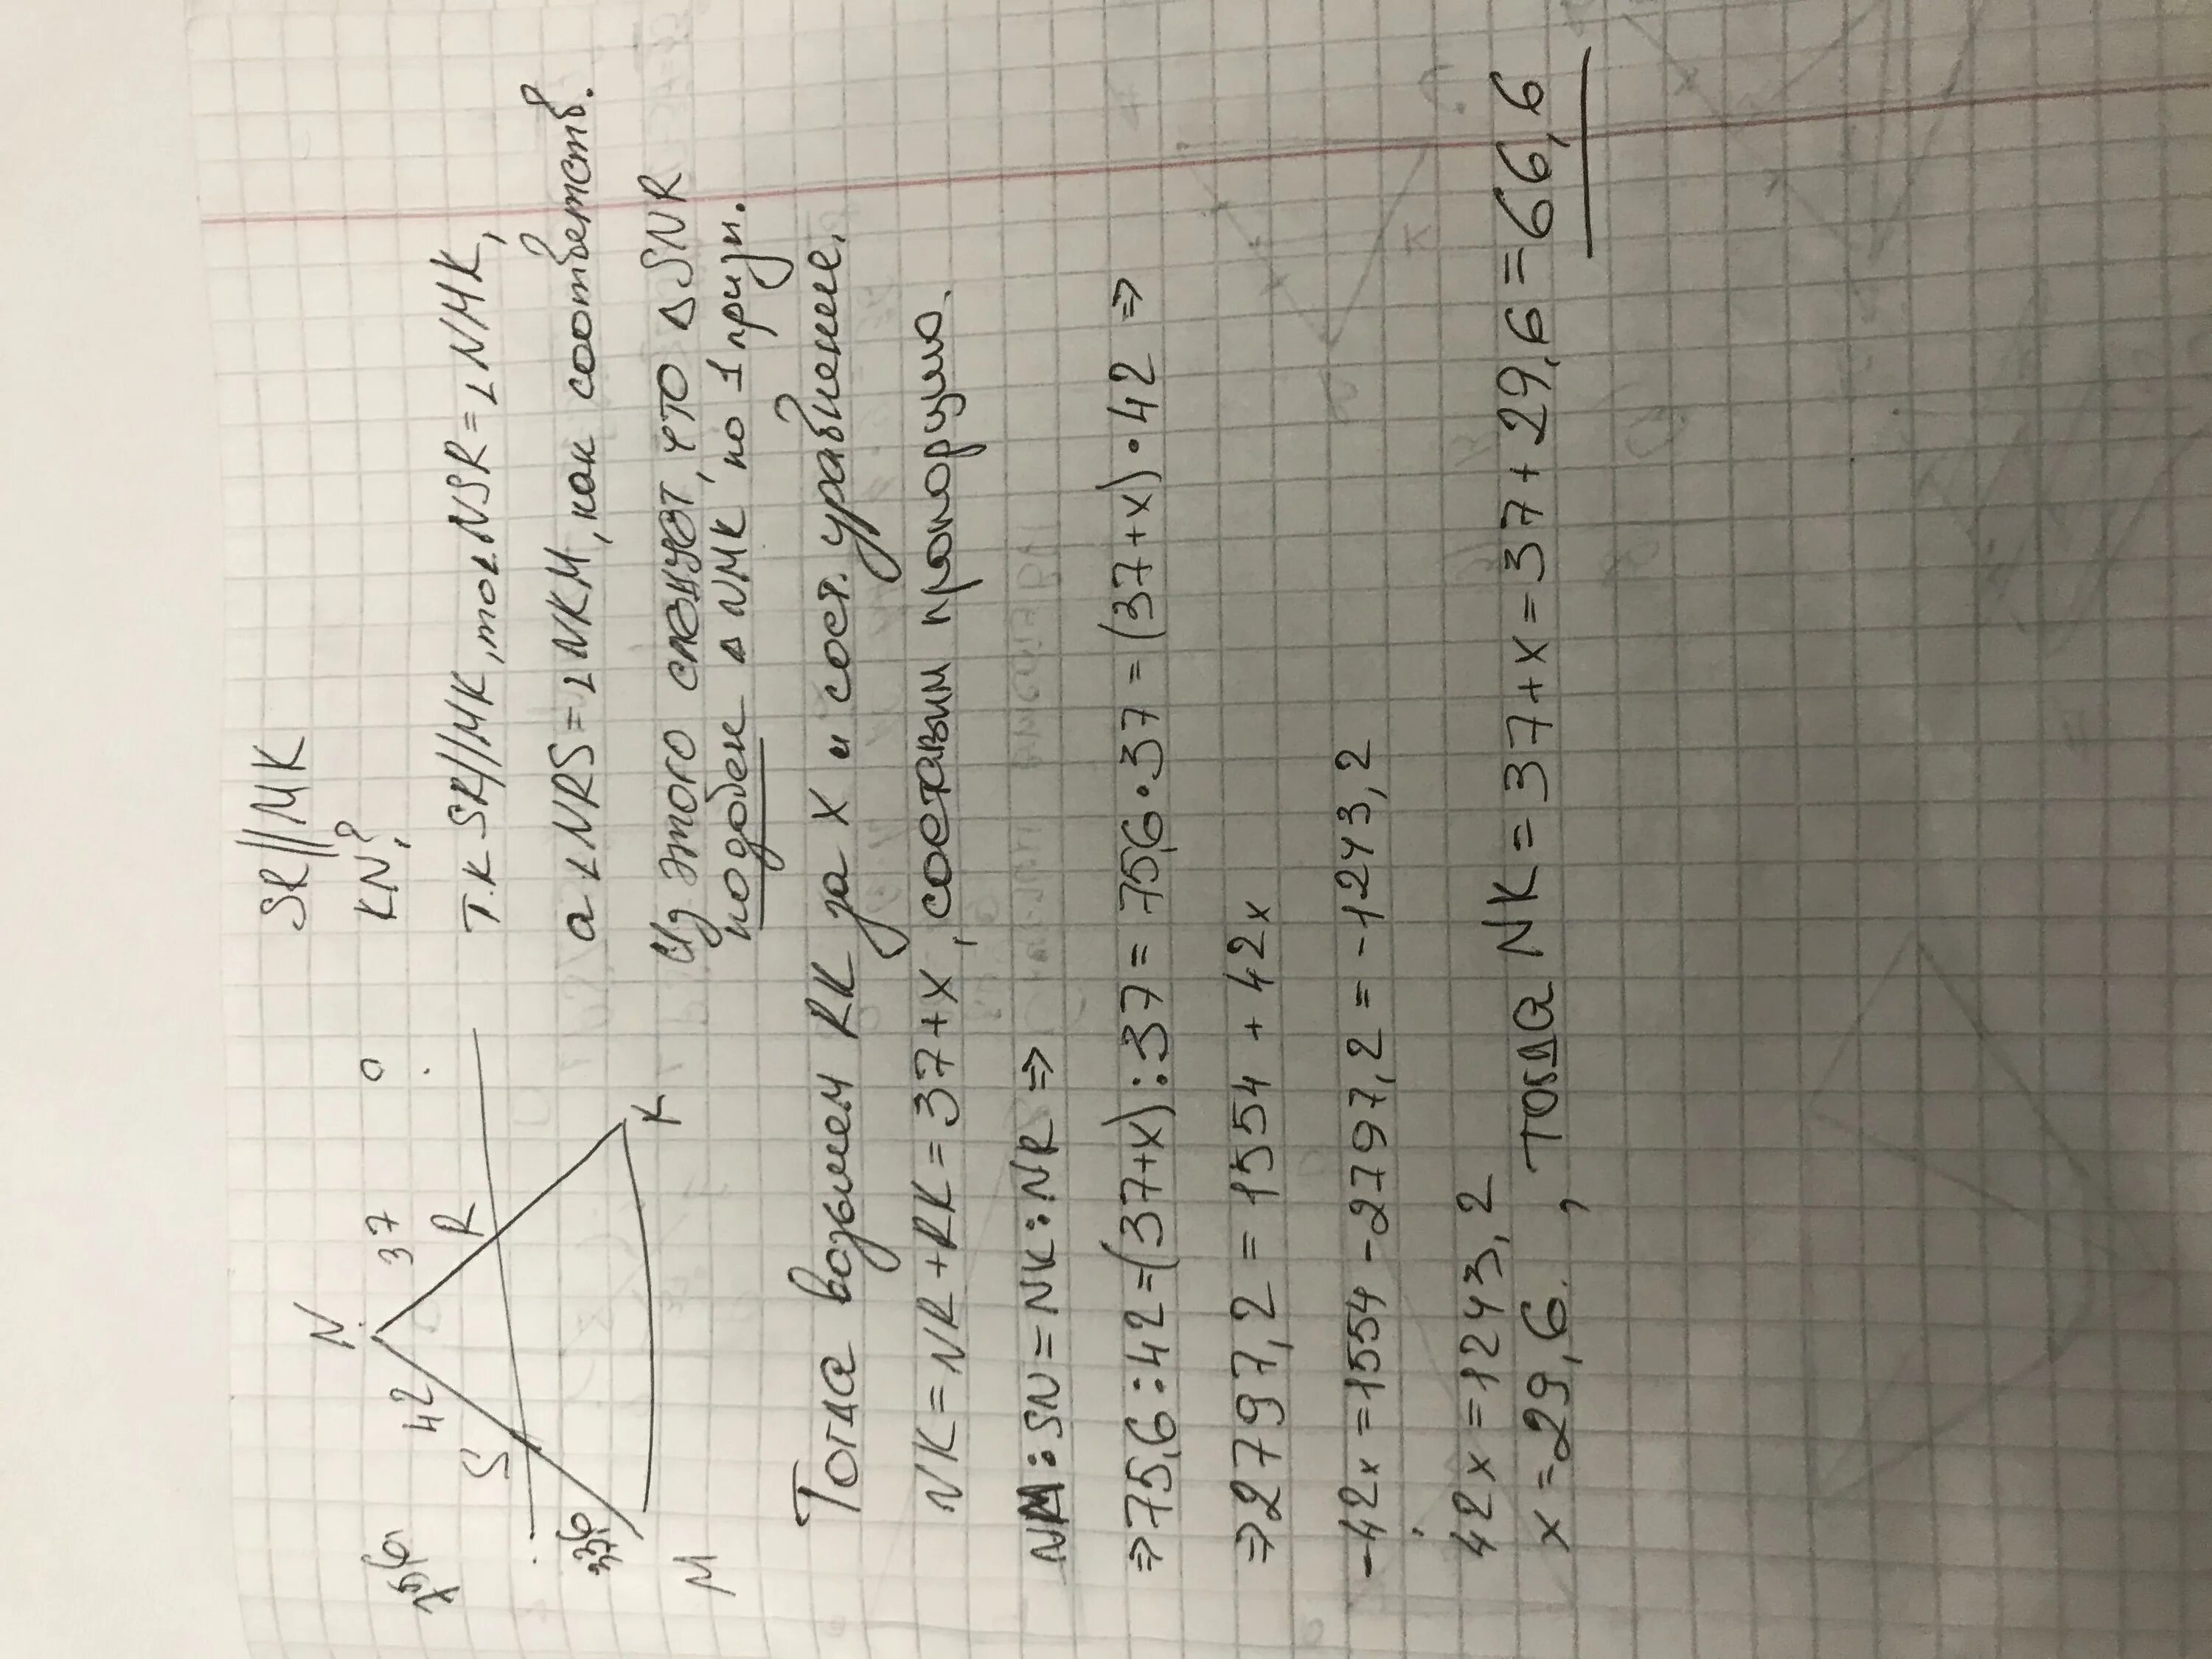 SR||MK
KN?
N
75,6
42
37
S
R
33,6
M
K
Т.К SR//MK, то ∠NSR=∠NMK,
а ∠NRS=∠NKM, как соответств.
Из этого следует, что △SNR
подобен △NMK по 1 призн.
Тогда возьмем RK за X и сост. уравнение.
NK=NR+RK=37+X, составим пропорцию.
NM:SN=NK:NR⇒
⇒75,6:42=(37+x):37=75,6•37=(37+x)•42⇒
⇒2797,2=1554+42x
-42x=1554-2797,2=-1243,2
42x=1243,2
x=29,6. , тогда NK=37+x=37+29,6=66,6